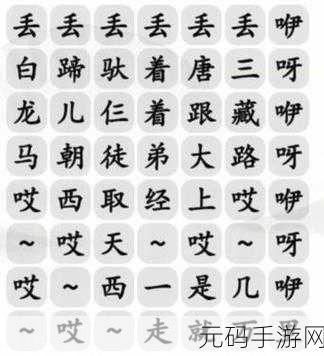 丢丢丢丢丢丢咿
白蹄驮着唐三呀
龙儿仨着跟藏咿
马朝徒弟大路呀
哎西取经上哎咿
~哎天~哎~呀
哎~西一是几咿
~哎~走就万里
元码手游网